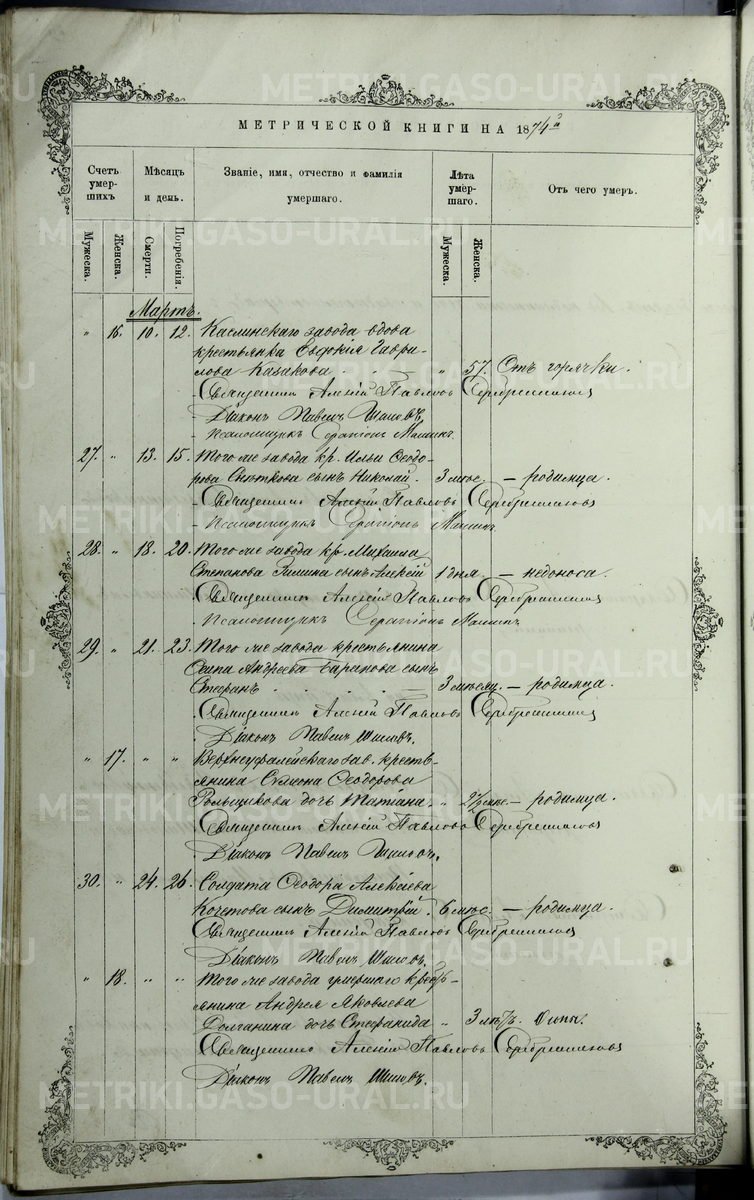 МЕТРИЧЕСКОЙ КНИГИ НА 1874й
Счетъ умер-шихъ
Мѣсяцъ и день.
Званіе, имя, отчество и фамилія умершаго.
Лѣта умер-шаго.
Отъ чего умеръ.
Мужеска. Женска. Смерти. Погребенія. Мужеска. Женска.
Мартъ.
" 16. 10. 12. Каслинскаго завода вдова
крестьянка Евдокія Гаври-
лова Казакова " 57. Отъ горячки.
Священникъ Алексій Павловъ Серебренниковъ
Діаконъ Павелъ Шишовъ.
Псаломщикъ Серапіонъ
27. " 13. 15. Того же завода кр. Ильи Ѳеодо-
рова сынъ Николай. 3 мѣс. — родимца.
Священникъ Алексій Павловъ Серебренниковъ
Псаломщикъ Серапіонъ
28. " 18. 20. Того же завода кр. Михаила
Степанова Зимина сынъ Алексій 1 дня. — недоноса.
Священникъ Алексій Павловъ Серебренниковъ
Псаломщикъ Серапіонъ
29. " 21. 23. Того же завода крестьянина
Осипа Андреева Баранова сынъ
Стефанъ 3 мѣсяц. — родимца.
Священникъ Алексій Павловъ Серебренниковъ
Діаконъ Павелъ Шишовъ.
" 17. " " Верхнеуфалейскаго зав. кресть-
янина Симеона Ѳеодорова
дочь Татіана. " 2½ мѣс. — родимца.
Священникъ Алексій Павловъ Серебренниковъ
Діаконъ Павелъ Шишовъ.
30. " 24. 26. Солдата Ѳеодора Алексѣева
Кочетова сынъ Димитрій. 6 мѣс. — родимца.
Священникъ Алексій Павловъ Серебренниковъ
Діаконъ Павелъ Шишовъ.
" 18. " " Того же завода умершаго кресть-
янина Андрея Яковлева
Долганина дочь Стефанида " 3 лѣтъ. Оспы.
Священникъ Алексій Павловъ Серебренниковъ
Діаконъ Павелъ Шишовъ.
METRIKI.GASO-URAL.RU